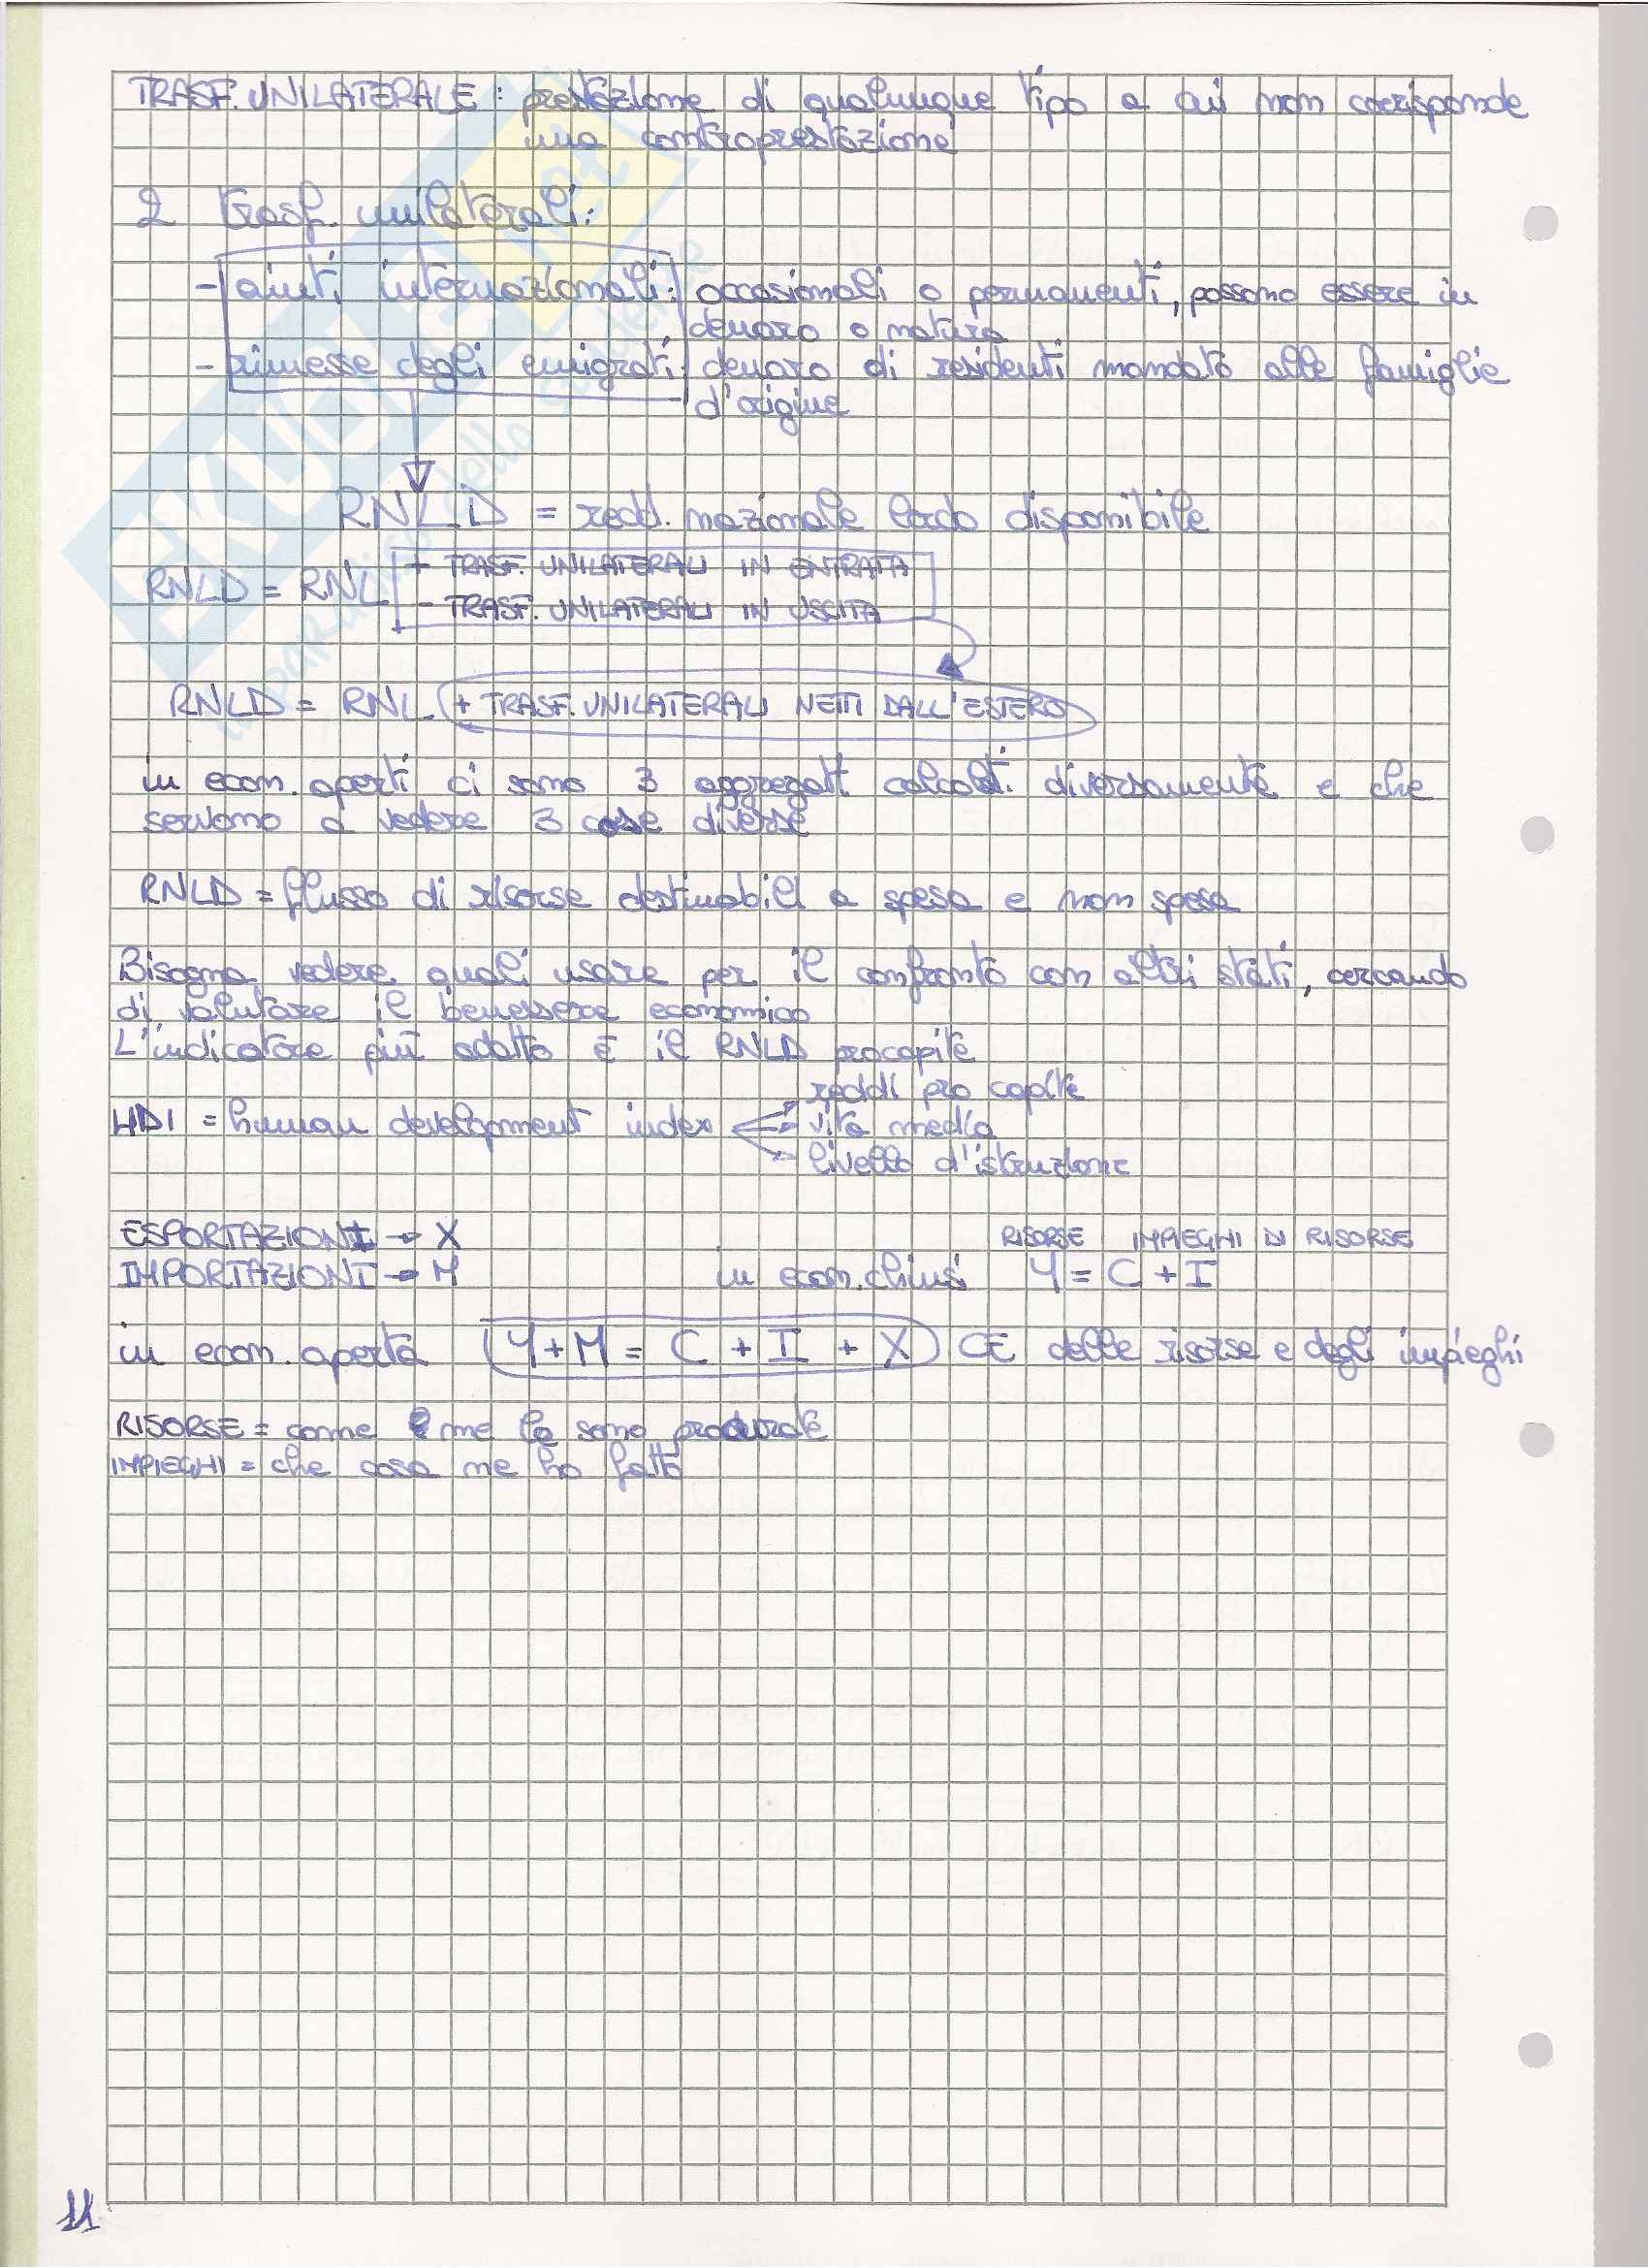 TRASF. UNILATERALE: prestazione di qualunque tipo a cui non corrisponde
una controprestazione
2 trasf. unilaterali:
- aiuti internazionali: occasionali o permanenti, possono essere in
denaro o natura
- rimesse degli emigrati: denaro di residenti mandato alle famiglie
d'origine
RNLD = redd. nazionale lordo disponibile
+ TRASF. UNILATERALI IN ENTRATA
RNLD = RNL
- TRASF. UNILATERALI IN USCITA
RNLD = RNL + TRASF. UNILATERALI NETTI DALL'ESTERO
in econ. aperti ci sono 3 aggregati calcolati diversamente e che
servono a vedere 3 cose diverse
RNLD = flusso di risorse destinabili a spesa e non spesa
Bisogna vedere quali usare per il confronto con altri stati, cercando
di valutare il benessere economico
L'indicatore più adatto è il RNLD procapite
reddi pro capite
HDI = human development index vita media
livello d'istruzione
ESPORTAZIONI → X RISORSE IMPIEGHI DI RISORSE
IMPORTAZIONI → M in econ. chiusi Y = C + I
in econ. aperta Y + M = C + I + X CE delle risorse e degli impieghi
RISORSE = come me le sono procurate
IMPIEGHI = che cosa ne ho fatto
11
SKUOLA.net
il paradiso dello studente